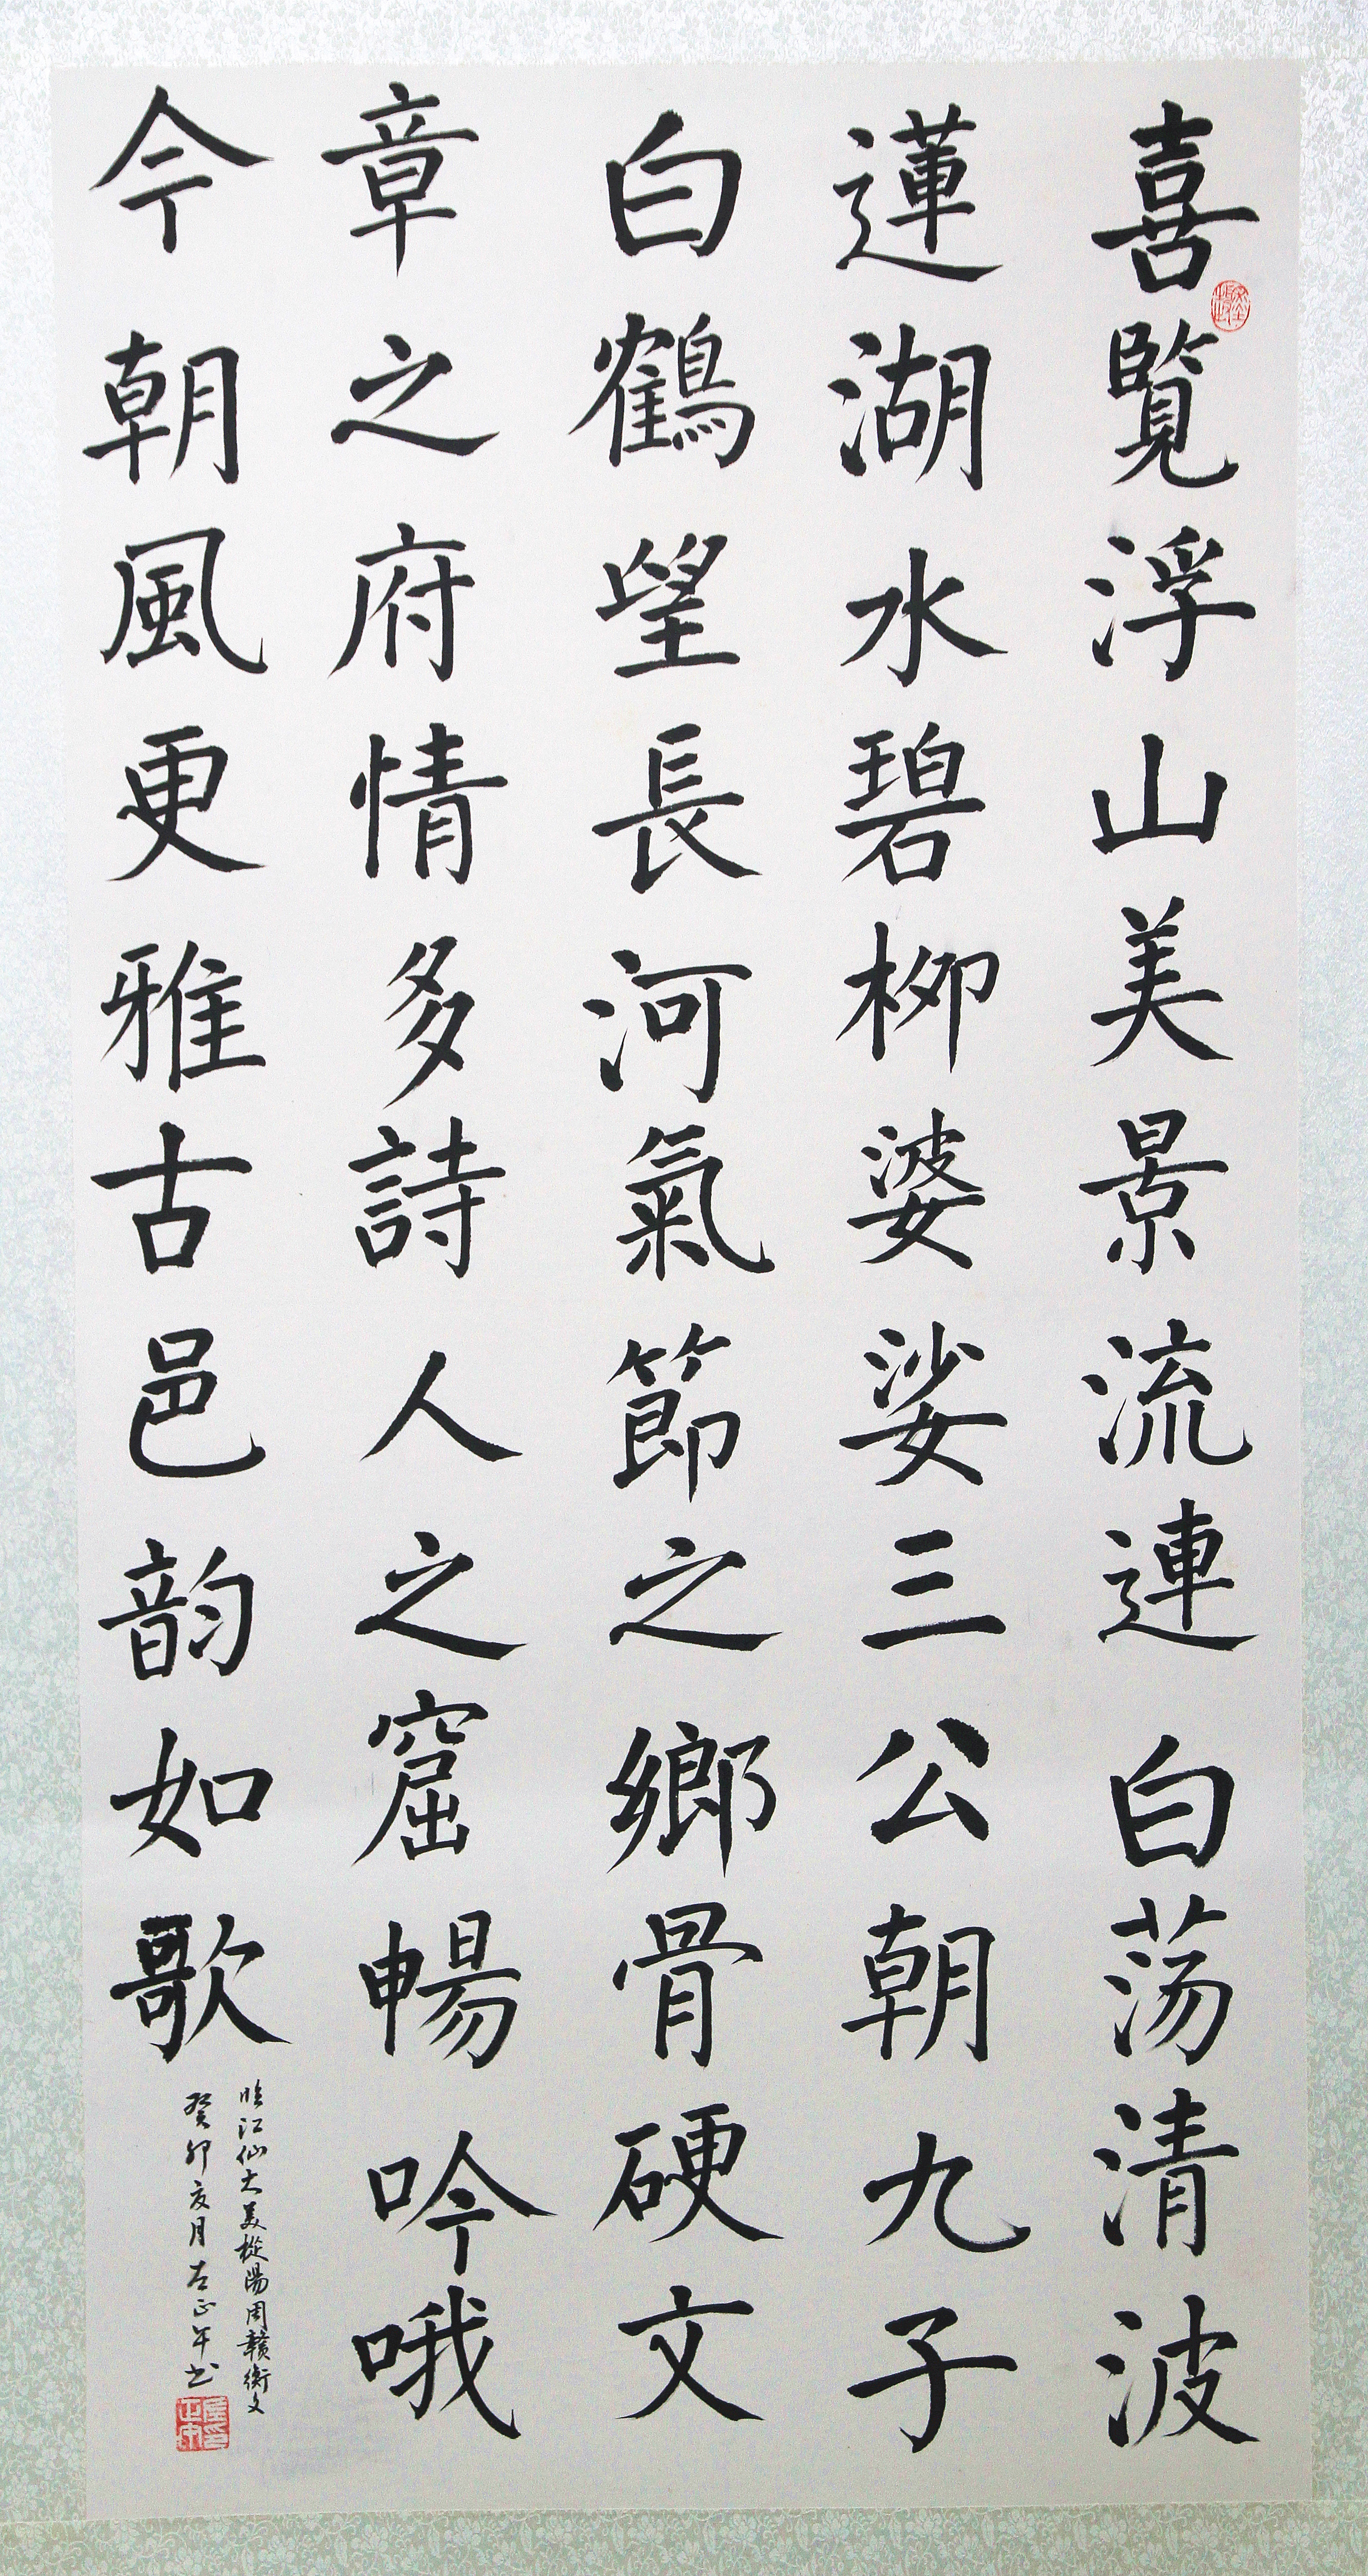 喜覧浮山美景流連白荡清波
蓮湖水碧柳婆娑三公朝九子
白鶴望長河氣節之鄉骨硬文
章之府情多詩人之窟暢吟哦
今朝風更雅古邑韵如歌
臨江仙大美樅陽周贛衡文
癸卯亥月左正午书